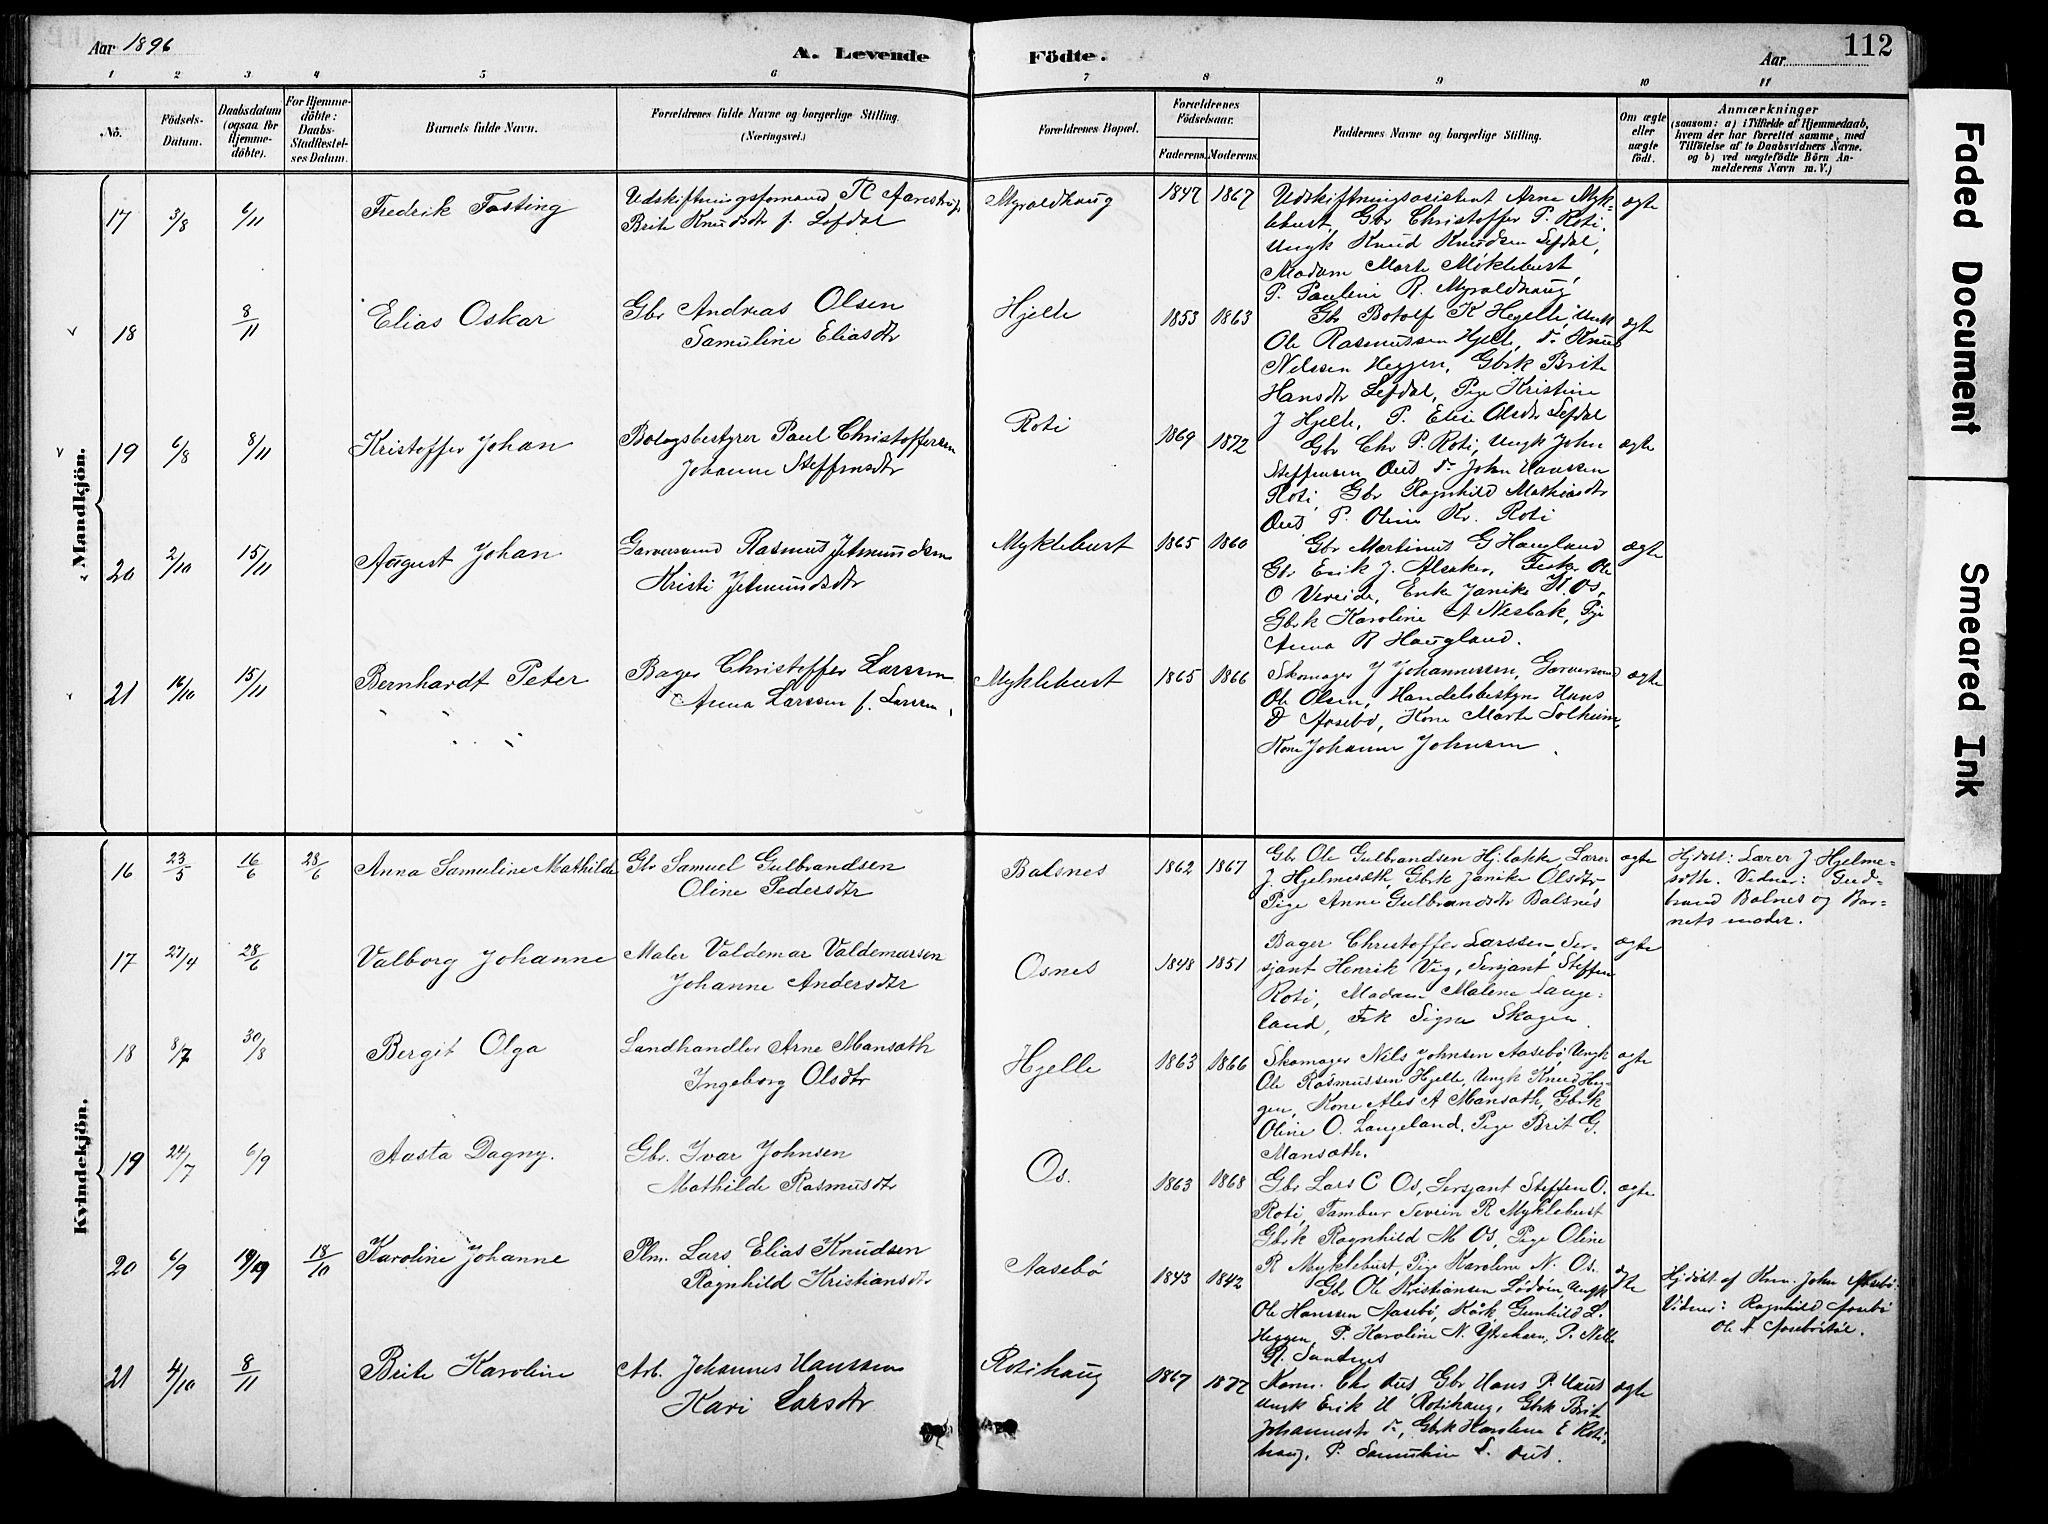 Aar 1896
A. Levende Födte.
Aar
112
1 2 3 4 5 6 7 8 9 10 11
No.
Födsels-Datum.
Daabsdatum (ogsaa for Hjemme-döbte).
For Hjemme-döbte: Daabs-Stadfæstel-ses Datum.
Barnets fulde Navn.
Forældrenes fulde Navne og borgerlige Stilling. (Næringsvei.)
Forældrenes Bopæl.
Forældrenes Födselsaar.
Faderens. Moderens.
Faddernes Navne og borgerlige Stilling.
Om ægte eller uægte födt.
Anmærkninger
(saasom: a) i Tilfælde af Hjemmedaab,
hvem der har forrettet samme, med
Tilföielse af to Daabsvidners Navne.
og b) ved uægtefödte Börn An-
melderens Navn m. V.)
Mandkjön.
17 3/8 6/11 Fredrik Fasting
Udskiftningsformand TC
Brite Knudsdtr f. Lefdal
Myroldhaug 1847 1867
Udskiftningsasistent Arne Myk-
lebust, Gbr Christoffer P. Roti,
Ungk Knud Knudsen Lefdal,
Madam Marte Myklebust,
P. Pauline R. Myroldhaug
ægte
18 8/11 Elias Oskar
Gbr Andreas Olsen
Samuline Eliasdtr
Hjelle 1853 1863
Gbr Botolf K Hejelle, Ungk
Ole Rasmussen Hjelle, do Knud
Nelssen Heggen, Gbrk Brite
Hansdtr Lefdal, Pige Kristine
J Hjelle, P. Elie Olsdtr Lefdal
ægte
19 6/8 8/11 Kristoffer Johan
Bolagsbestyrer Paul Christoffersen
Johanne Steffensdtr
Roti 1869 1872
Gbr Chr P. Roti, Ungk John
Steffensen Aus do John Hanssen
Roti, Gbr Ragnhild Mathiasdtr
Aus P. Oline Kr. Roti
ægte
20 2/10 15/11 August Johan
Garversvend Rasmus Jetmundsen
Kristi Jetmundsdtr
Myklebust 1865 1860
Gbr Martinus G Haugland
Gbr Erik J. Alsaker, Ole
O Vereide, Enke Janike H. Os,
Gbrk Karoline A Nesbak, Pige
Anna R Haugland.
ægte
21 16/10 15/11 Bernhardt Peter
Bager Christoffer Larssen
Anna Larssen f. Larsen,
Myklebust 1865 1866
Skomager J Johannessen, Garversvend
Ole Olsen, Handelsbestyrer Hans
D Aasebø, Kone Marte Solheim,
Kone Johanne Johnsen.
ægte
Kvindekjön.
16 23/5 16/6 28/6 Anna Samuline Mathilde
Gbr Samuel Gulbrandsen
Oline Pedersdtr
Balsnes 1862 1867
Gbr Ole Gulbrandsen Lærer
J. Hjelmesæth Gbrk Janike Olsdtr,
Pige Anne Gulbrandsdtr Balsnes
ægte
Hjdøbt: Lærer J Hjelme-
sæth. Vidner: Gud-
brand Balnes og Bar-
nets moder.
17 27/4 28/6 Valborg Johanne
Maler Valdemar Valdemarsen
Johanne Andersdtr
Osnes 1848 1851
Bager Christoffer Larssen, Ser-
sjant Henrik Vig, Sersjant Steffen
Roti, Madam Malene Lange-
land, Frk Signe Skogen.
ægte
18 8/7 30/8 Bergit Olga
Landhandler Arne Mansæth
Ingeborg Olsdtr
Hjelle 1863 1866
Skomager Nils Johnsen Aasebø, Ungk
Ole Rasmussen Hjelle, Ungk Knud Heg-
gen, Kone Ales A Mansæth, Gbrk
Oline O. Langeland, Pige Brit G.
Mansæth.
ægte
19 24/7 6/9 Aasta Dagny.
Gbr. Ivar Johnsen
Mathilde Rasmusdtr
Os. 1863 1868
Gbr Lars C Os, Sersjant Steffen O.
Roti, Tambur Severin R Myklebust
Gbrk Ragnhild M Os, Pige Oline
R Myklebust, Pige Karoline N. Os.
ægte
20 6/9 18/10 Karoline Johanne
Plm. Lars Elias Knudsen
Ragnhild Kristiansdtr
Aasebø 1843 1842
Gbr Ole Kristiansen Lødøen, Ungk
Ole Hanssen Aasebø, Kårk Gunhild L.
Heggen, P. Karoline N. Ytrehorn, P. Nelle
R. Sandnes
ægte
Hjdøbt af Kva. John Aasebø.
Vidner: Ragnhild Aasebø
Ole A Aasebøstøl.
21 4/10 8/11 Brite Karoline
Arb. Johannes Hanssen
Kari Larsdtr
Rotihaug 1867 1877
Chr Aus Gbr Hans P. Aus
Ungk Erik H Rotihaug, Gbrk Brite
Johannesdtr do, Gbrk Karoline E Roti-
haug, P. Samuline S. Aus.
ægte
Faded Document
Smeared Ink